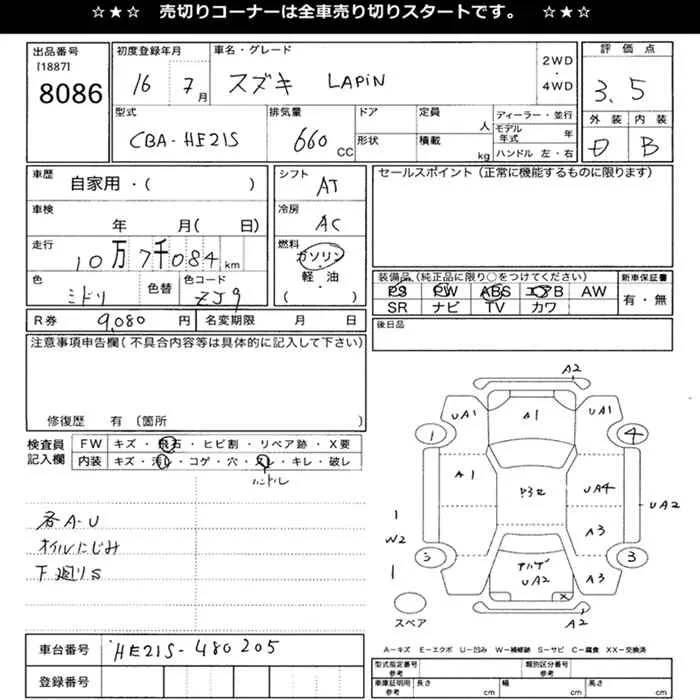 ☆★☆ 売切りコーナーは全車売り切りスタートです。 ☆★☆
出品番号
[1887]
8086
初度登録年月
16 7月
車名・グレード
スズキ LAPIN
2WD
・
4WD
評価点
3.5
外装 内装
D B
型式
CBA-HE21S
排気量
660 CC
ドア
形状
定員 人
積載 kg
ディーラー・並行
モデル年式 年
ハンドル 左・右
車歴
自家用・( )
車検
年 月( 日)
走行
10万7千084 km
色
ミドリ
色替
色コード
ZJ9
シフト
AT
冷房
AC
燃料
ガソリン
・
軽油
( )
セールスポイント(正常に機能するものに限ります)
装備品(純正品に限り○をつけてください)
PS PW ABS エアB AW
SR ナビ TV カワ
新車保証書
有・無
R券 9,080 円 名変期限 月 日
後日品
注意事項申告欄(不具合内容等は具体的に記入して下さい)
修復歴 有 〔箇所 〕
検査員
記入欄
FW キズ・飛石・ヒビ割・リペア跡・X要
内装 キズ・汚れ・コゲ・穴・スレ・キレ・破レ
ハンドル
各A-U
オイルにじみ
下廻りS
A2
UA1 A1 UA1
1 4
A1 UA4 UA2
1
W2
A3
1
3
UA2 A3
X
スペア
A2
A-キズ E-エクボ U-凹み W-補修跡 S-サビ C-腐食 XX-交換済
車台番号 HE21S-480205
登録番号
型式指定番号
参考
類別区分番号
参考
車庫証明用
参考
長さ cm 幅 cm 高さ cm